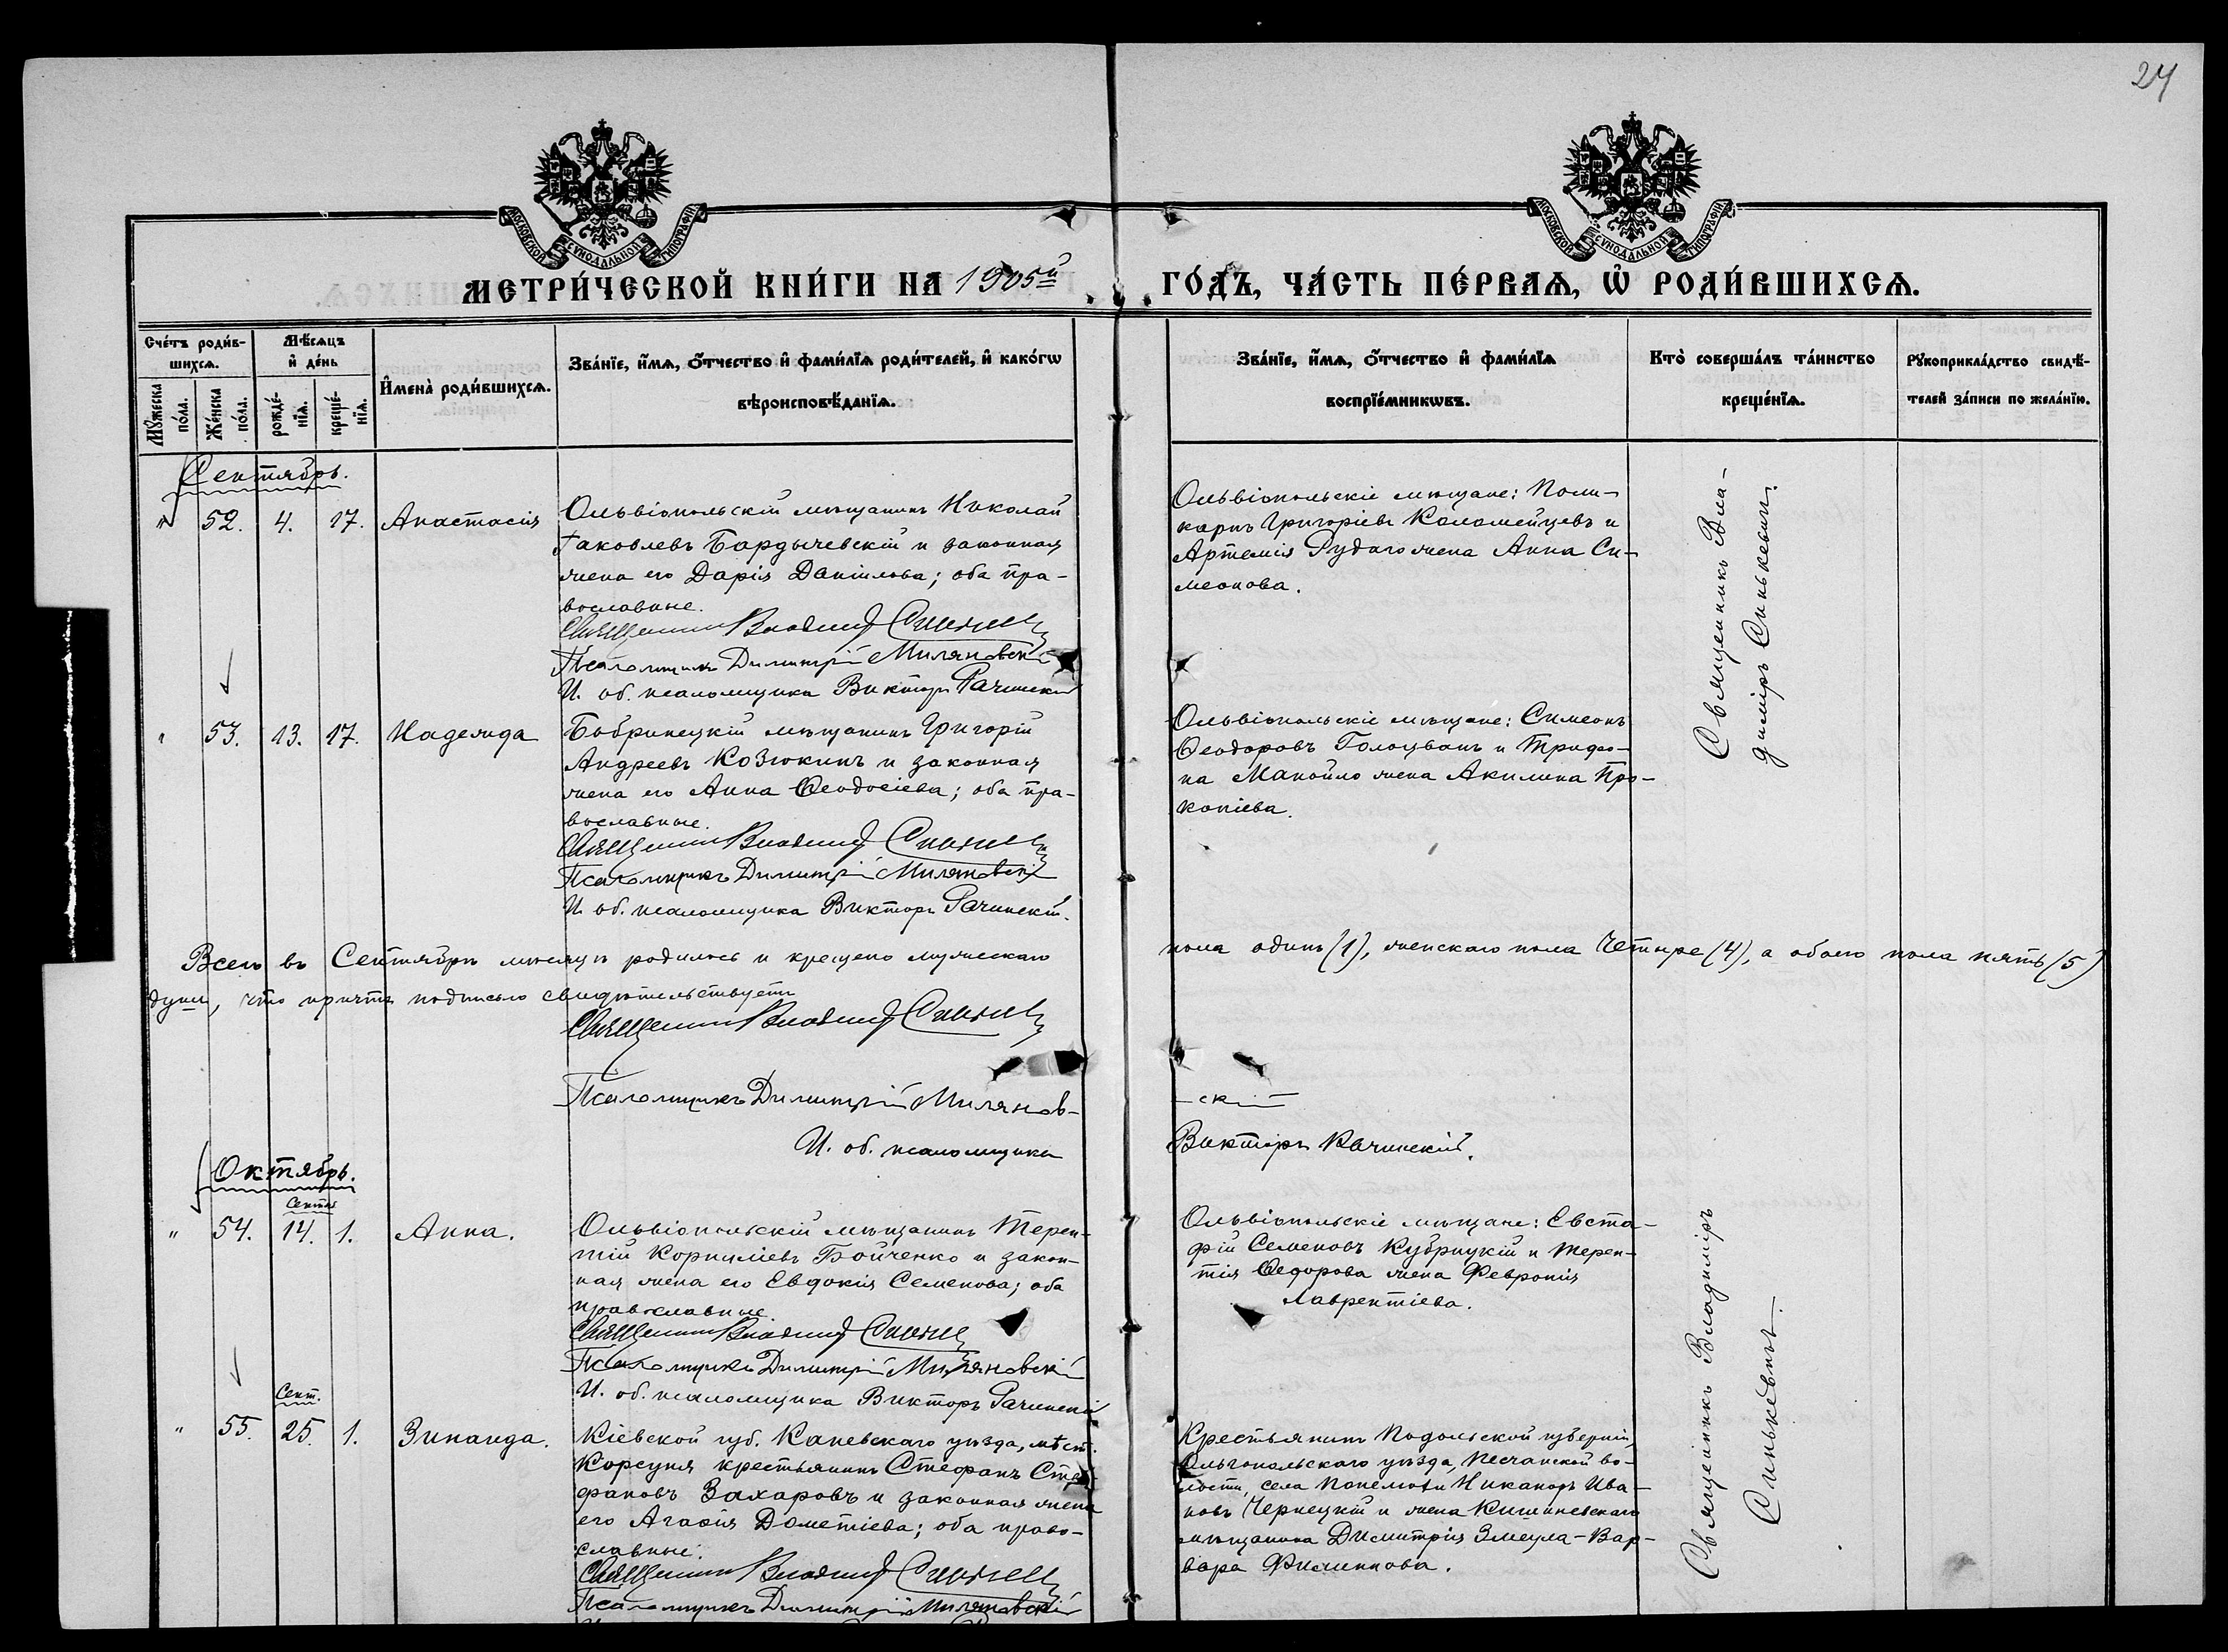 24
МОСКОВСКОЙ СѴНОДАЛЬНОЙ ТИПОГРАФІИ
МОСКОВСКОЙ СѴНОДАЛЬНОЙ ТИПОГРАФІИ
МЕТРИ́ЧЕСКОЙ КНИ́ГИ НА 1905й ГО́ДЪ, ЧА́СТЬ ПЕ́РВАѦ, Ѽ РОДИ́ВШИХСѦ.
Сче́тъ роди́в-
шихсѧ.
Мꙋ́жеска по́ла.
Же́нска по́ла.
Мѣ́сѧцъ
и҆ де́нь
рожде́-
нїѧ.
креще́-
нїѧ.
И҆мена̀ роди́вшихсѧ.
Зва́нїе, и҆́мѧ, ѻ҆́тчество и҆ фами́лїѧ роди́телей, и҆ како́гѡ
вѣроисповѣ́данїѧ.
Зва́нїе, и҆́мѧ, ѻ҆́тчество и҆ фами́лїѧ
воспрїе́мникѡвъ.
Кто̀ соверша́лъ та́инство
креще́нїѧ.
Рꙋкоприкла́дство свидѣ́-
телей за́писи по жела́нїю.
Сентябрь.
" 52. 4. 17. Анастасія
Ольвіопольскій мѣщанинъ Николай
Іаковлевъ Бардычевскій и законная
жена его Дарія Даніилова; оба пра-
вославные.
Священникъ Владимір
Псаломщикъ Димитрій Миляновскій
И. об. псаломщика Викторъ Рачинскій
Ольвіопольскіе мѣщане: Поли-
карпъ Григоріевъ Каламейцевъ и
Артемія Рудаго жена Анна Си-
меонова.
Священникъ Вла-
диміръ Синькевичъ.
" 53. 13. 17. Надежда
Бобринецкій мѣщанинъ Григорій
Андреевъ Козюкинъ и законная
жена его Анна Ѳеодосіева; оба пра-
вославные.
Священникъ Владимір
Псаломщикъ Димитрій Миляновскій
И. об. псаломщика Викторъ Рачинскій.
Ольвіопольскіе мѣщане: Симеонъ
Ѳеодоровъ Голоцванъ и
на Манойло жена Акилина Про-
копіева.
Всего въ Сентябрѣ мѣсяцѣ родилось и крещено мужескаго пола одинъ (1), женскаго пола четыре (4), а обоего пола пять (5)
душъ, что причтъ подписью свидѣтельствуетъ
Священникъ Владимір
Псаломщикъ Димитрій Милянов- -скій
И. об. псаломщика Викторъ Рачинскій.
Октябрь.
Сентяб
" 54. 14. 1. Анна.
Ольвіопольскій мѣщанинъ Терен-
тій Корниліевъ Бойченко и закон-
ная жена его Евдокія Семенова; оба
православные.
Священникъ Владимір
Псаломщикъ Димитрій Миляновскій
И. об. псаломщика Викторъ Рачинскій
Ольвіопольскіе мѣщане: Евста-
фій Семеновъ Кубрицкій и Терен-
тія Ѳедорова жена Февронія
Лаврентіева.
Священникъ Владиміръ
Синькевичъ.
Сент.
" 55. 25. 1. Зинаида.
Кіевской губ. Каневскаго уѣзда, мѣст.
Корсуня крестьянинъ Стефанъ Сте-
фановъ Захаровъ и законная жена
его Агаѳія Дометіева; оба право-
славные.
Священникъ Владимір
Псаломщикъ Димитрій Миляновскій
Крестьянинъ Подольской губерніи,
Ольгопольскаго уѣзда, Песчанской во-
лости, села Никаноръ Ива-
новъ Чернецкій и жена Кишиневскаго
мѣщанина Димитрія Змеула-Вар-
вара Филиппова.